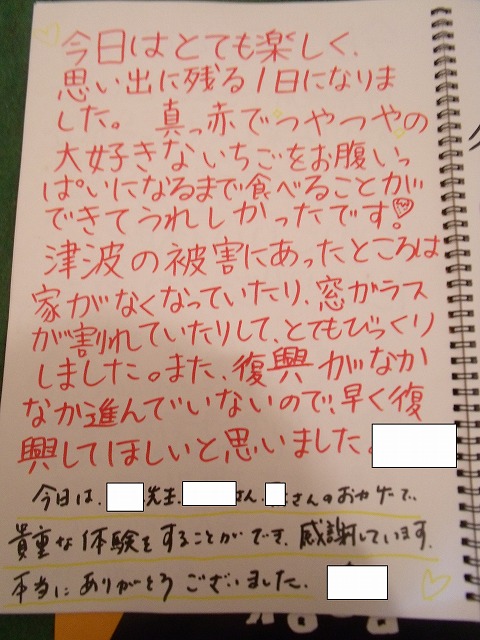 今日はとても楽しく、
思い出に残る1日になりま
した。真っ赤でつやつやの
大好きないちごをお腹いっ
ぱいになるまで食べることが
できてうれしかったです!
津波の被害にあったところは
家がなくなっていたり、窓ガラス
が割れていたりして、とてもびっくり
しました。また、復興がなか
なか進んでいないので、早く復
興してほしいと思いました。
今日は、先生、さん、さんのおかげで、
貴重な体験をすることができ、感謝しています。
本当にありがとうございました。